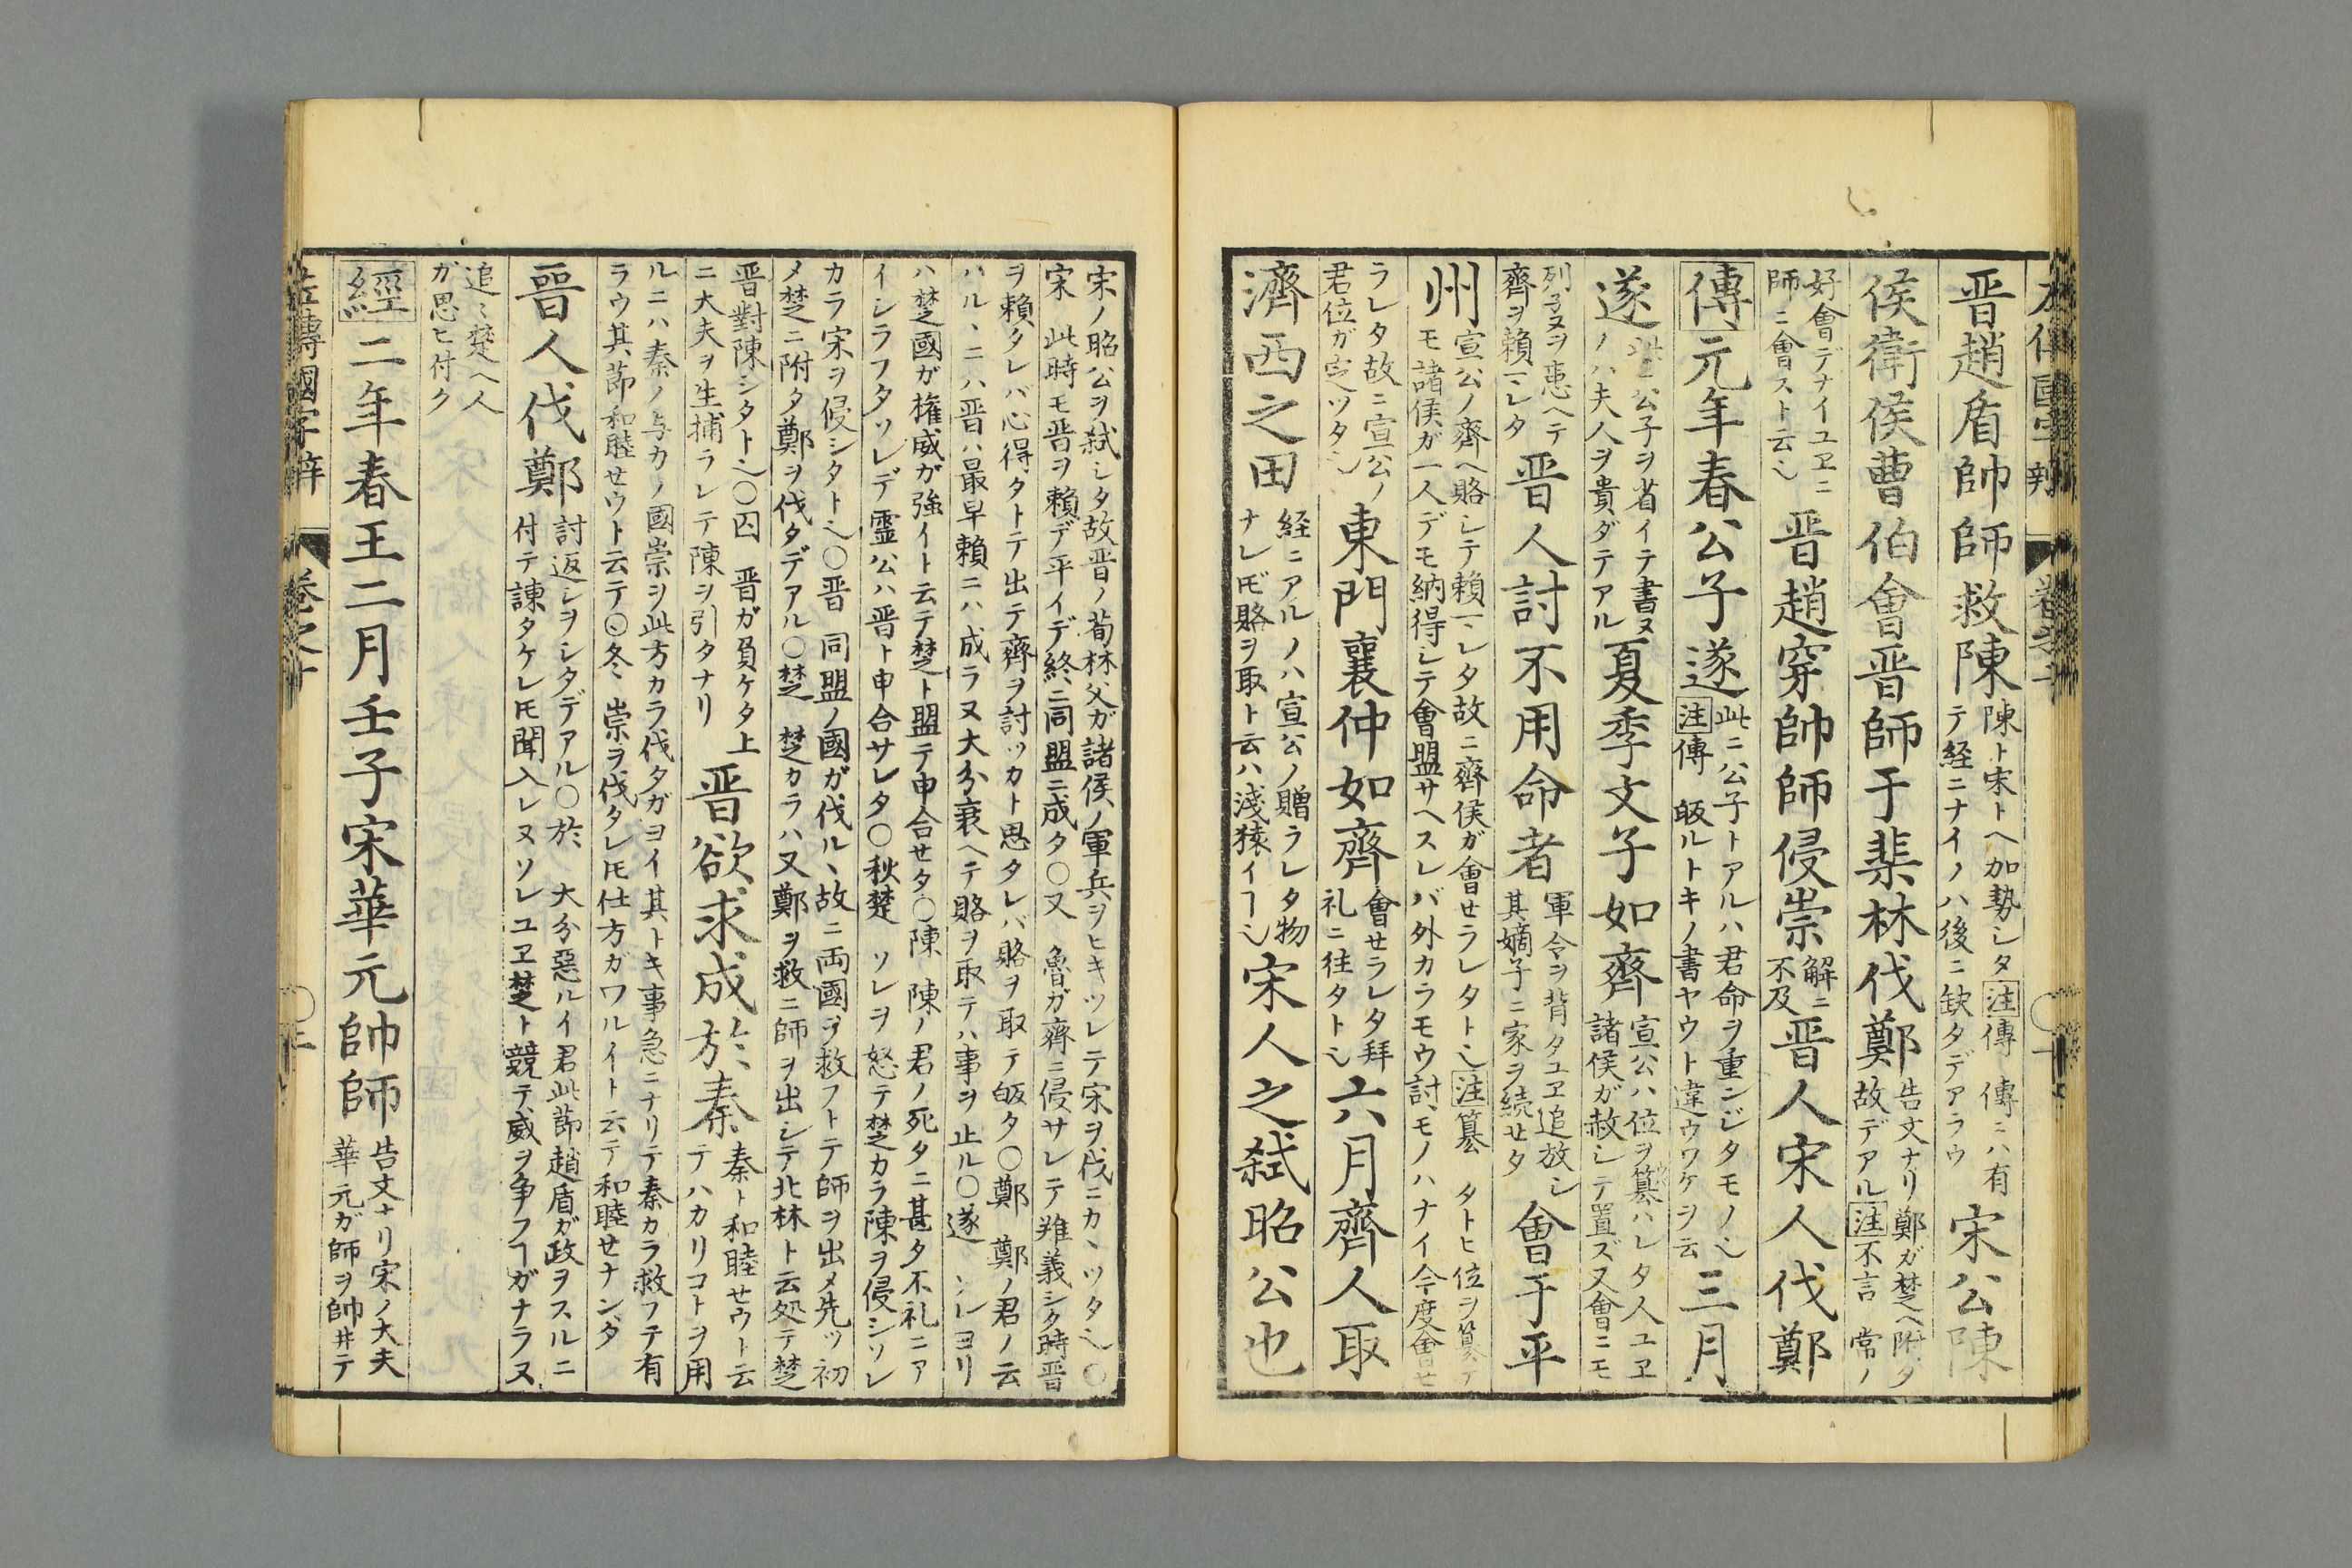 晋趙盾帥師救陳陳ト宋トヘ加勢シタ注傳 傳ニハ有テ経ニナイノハ後ニ缺タデアラウ宋公陳
侯衛侯曹伯會晋師于棐林伐鄭告文ナリ鄭ガ楚ヘ附タ故デアル注不言 常ノ
好會デナイユヱニ師ニ會スト云也晋趙穿帥師侵崇解ニ不及晋人宋人伐鄭
傳元年春公子遂此ニ公子トアルハ君命ヲ重ンジタモノ也注傳 皈ルトキノ書ヤウト違ウワケヲ云三月
遂 公子ヲ省イテ書ヌノハ夫人ヲ貴ダテアル夏季文子如齊宣公ハ位ヲ簒ハレタ人ユヱ諸侯ガ赦シテ置ズ又會ニモ
列子ヌヲ患ヘテ齊ヲ頼マレタ晋人討不用命者軍令ヲ背タユヱ追放シ其嫡子ニ家ヲ続セタ會于平
州宣公ノ齊ヘ賂シテ頼マレタ故ニ齊侯ガ會セラレタト也注簒 タトヒ位ヲ簒テモ諸侯ガ一人デモ納得シテ會盟サヘスレバ外カラモウ討モノハナイ今度會セ
ラレタ故ニ宣公ノ君位ガ定ツタ也東門襄仲如齊會セラレタ拜礼ニ往タト也六月齊人取
濟西之田経ニアルノハ宣公ノ贈ラレタ物ナレ𪜈賂ヲ取ト云ハ淺猿イヿ也宋人之弑昭公也
宋ノ昭公ヲ弑シタ故晋ノ荀林父ガ諸侯ノ軍兵ヲヒキツレテ宋ヲ伐ニカヽツタ也〇
宋 此時モ晋ヲ頼デ平イデ終ニ同盟ニ成タ〇又 魯ガ齊ニ侵サレテ難義シタ時晋
ヲ頼タレバ心得タトテ出テ齊ヲ討ツカト思タレバ賂ヲ取テ皈タ〇鄭 鄭ノ君ノ云
ハルヽニハ晋ハ最早頼ニハ成ラヌ大分衰ヘテ賂ヲ取テハ事ヲ止ル〇遂 ソレヨリ
ハ楚國ガ権威ガ強イト云テ楚ト盟テ申合セタ〇陳 陳ノ君ノ死タニ甚タ不礼ニア
イシラフタソレデ霊公ハ晋ト申合サレタ〇秋楚 ソレヲ怒テ楚カラ陳ヲ侵シソレ
カラ宋ヲ侵シタト也〇晋 同盟ノ國ガ伐ルヽ故ニ両國ヲ救フトテ師ヲ出メ先ツ初
メ楚ニ附タ鄭ヲ伐タデアル〇楚 楚カラハ又鄭ヲ救ニ師ヲ出シテ北林ト云処テ楚
晋對陳シタト也〇囚 晋ガ負ケタ上ニ大夫ヲ生捕ラレテ陳ヲ引タナリ晋欲求成於秦秦ト和睦セウト云テハカリコトヲ用
ルニハ秦ノ与カノ國崇ヲ此方カラ伐タガヨイ其トキ事急ニナリテ秦カラ救フテ有
ラウ其節和睦セウト云テ〇冬 崇ヲ伐タレ𪜈仕方ガワルイト云テ和睦セナンダ
晉人伐鄭討返シヲシタデアル〇於 大分惡ルイ君此節趙盾ガ政ヲスルニ付テ諌タケレ𪜈聞入レヌソレユヱ楚ト競テ威ヲ争フヿガナラヌ
追々楚ヘ人ガ思ヒ付ク
經二年春王二月壬子宋華元帥師告文ナリ宋ノ大夫華元ガ師ヲ帥井テ
左傳國字辯 巻之十 〇二